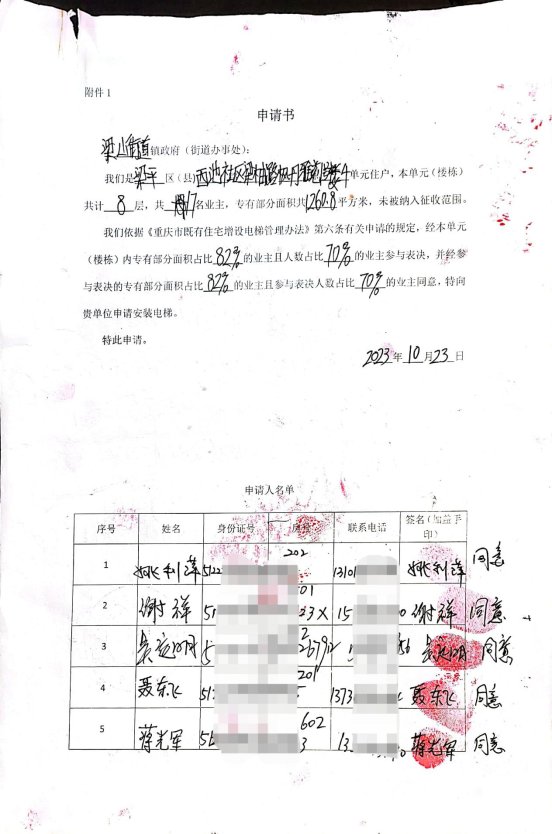 附件1
申请书
梁山街道镇政府（街道办事处）：
我们是梁平区（县）西池社区 单元住户，本单元（楼栋）
共计8层，共17名业主，专有部分面积共1260.8平方米，未被纳入征收范围。
我们依据《重庆市既有住宅增设电梯管理办法》第六条有关申请的规定，经本单元
（楼栋）内专有部分面积占比82%的业主且人数占比70%的业主参与表决，并经参
与表决的专有部分面积占比82%的业主且参与表决人数占比70%的业主同意，特向
贵单位申请安装电梯。
特此申请。
2023年10月23日
申请人名单
序号 姓名 身份证号 房号 联系电话 签名（加盖手印）
1 姚利萍 5122 202 13101 姚利萍 同意
2 谢祥 51 01 23X 15 0 谢祥 同意
3 5 2 56 同意
4 聂东飞 51 201 1373 聂东飞 同意
5 蒋光军 602 3 13 蒋光军 同意